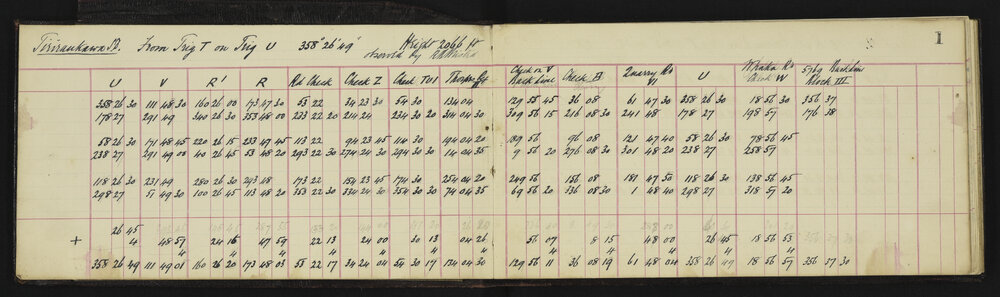 Tiriraukawa S.D. From Trig T on Trig U 358° 26' 49" Height 2066 ft 1
observed by
U V R' R Rd Check Check Z Check TVI Check on V Back Line Check B Quarry Rd VI U Whaka Rd Block W Back Line Block III
358 26 30 111 48 30 160 26 00 173 47 30 53 22 34 23 30 54 30 134 04 129 55 45 36 08 61 47 30 358 26 30 18 56 30 356 37
178 27 291 49 340 26 30 353 48 00 233 22 20 214 24 234 30 20 314 04 30 309 56 15 216 08 30 241 48 178 27 198 57 176 38
58 26 30 171 48 45 220 26 15 233 47 45 113 22 94 23 45 114 30 194 04 20 189 56 96 08 121 47 40 58 26 30 78 56 45
238 27 291 49 00 40 26 45 53 48 20 293 22 30 274 24 30 294 30 30 14 04 35 9 56 20 276 08 30 301 48 20 238 27 258 57
118 26 30 231 49 280 26 30 293 48 173 22 154 23 45 174 30 254 04 20 249 56 156 08 181 47 50 118 26 30 138 56 45
298 27 51 49 30 100 26 45 113 48 20 353 22 30 334 24 30 354 30 30 74 04 35 69 56 20 336 08 30 1 48 40 298 27 318 57 20
26 45
+ 4 48 57 24 16 47 59 22 13 24 00 30 13 04 26 56 07 8 15 48 00 26 45 18 56 53
4 4 4 4 4 4 4 4 4 4 4 4
358 26 49 111 49 01 160 26 20 173 48 03 53 22 17 34 24 04 54 30 17 134 04 30 129 56 11 36 08 19 61 48 04 358 26 49 18 56 57 356 37 30